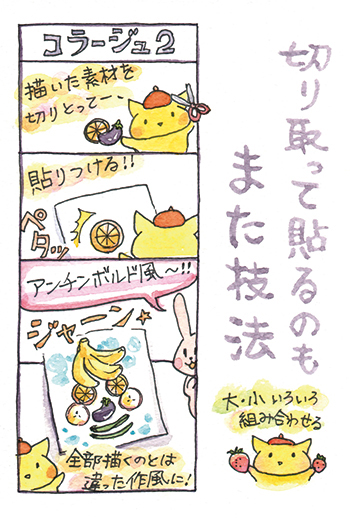 切り取って貼るのも
また技法
コラージュ2
描いた素材を
切りとってー
貼りつける!!
ペタッ
アンチンボルド風〜!!
ジャーン
全部描くのとは
違った作風に!
大・小いろいろ
組み合わせる